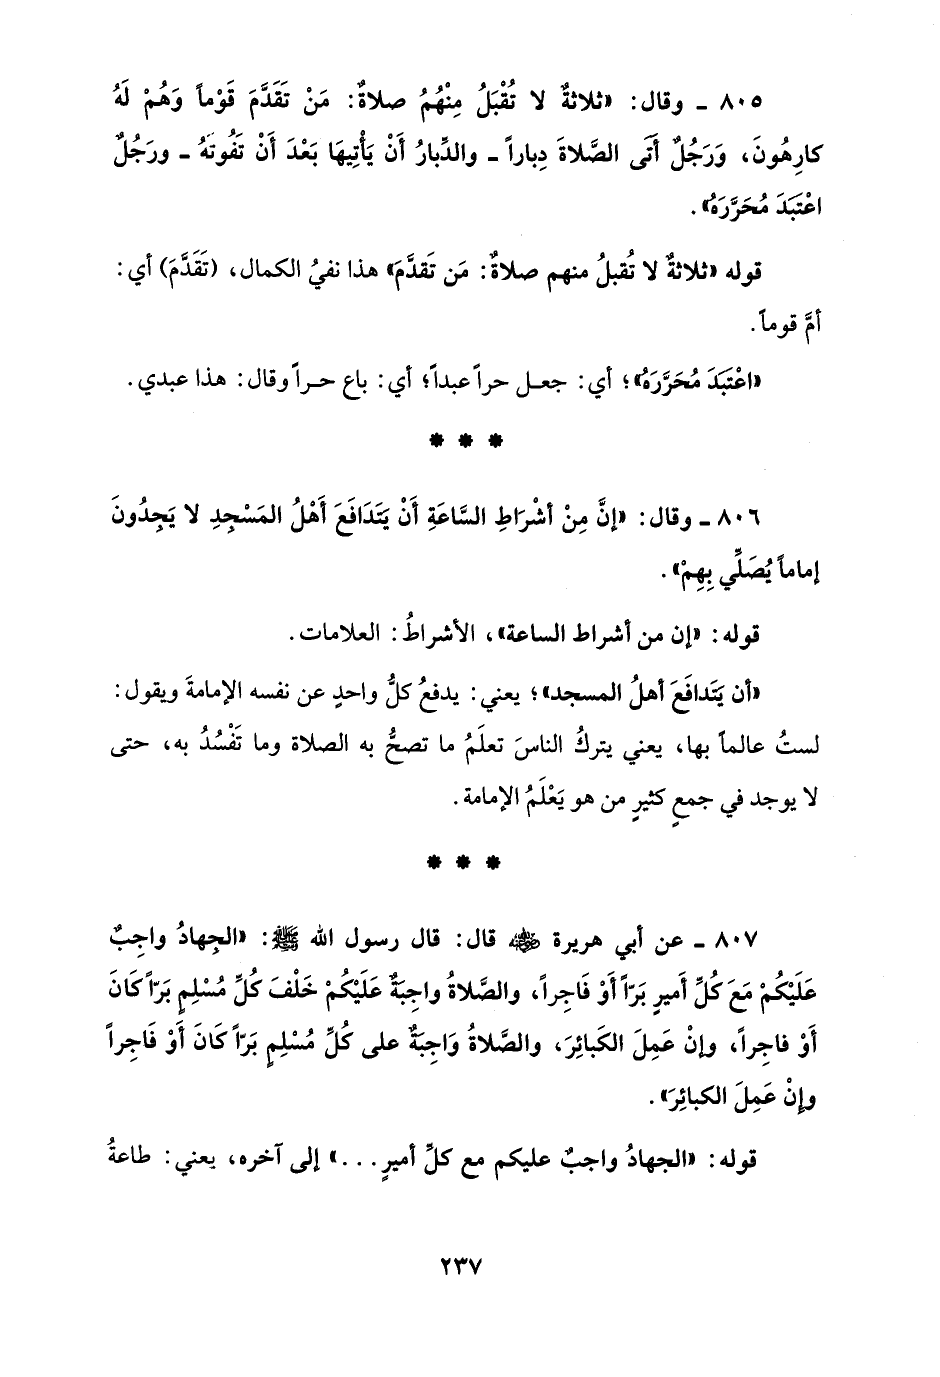 ٨٠٥ ـ وقال: «ثلاثةٌ لا تُقْبَلُ مِنْهُمُ صلاةٌ: مَنْ تَقَدَّمَ قَوْماً وَهُمْ لَهُ
كارِهُونَ، وَرَجُلٌ أَتَى الصَّلاةَ دِباراً ـ والدِّبارُ أَنْ يَأْتِيهَا بَعْدَ أَنْ تَفُوتَهُ ـ ورَجُلٌ
اعْتَبَدَ مُحَرَّرَهُ».
قوله «ثلاثةٌ لا تُقبلُ منهم صلاةٌ: مَن تَقدَّمَ» هذا نفيُ الكمال، (تَقَدَّمَ) أي:
أمَّ قوماً.
«اعْتَبَدَ مُحَرَّرَهُ»؛ أي: جعل حراً عبداً؛ أي: باع حراً وقال: هذا عبدي.
* * *
٨٠٦ ـ وقال: «إنَّ مِنْ أشْرَاطِ السَّاعَةِ أَنْ يَتَدَافَعَ أَهْلُ المَسْجِدِ لا يَجِدُونَ
إماماً يُصَلِّي بِهِمْ».
قوله: «إن من أشراط الساعة»، الأشراطُ: العلامات.
«أن يَتَدافَعَ أهلُ المسجد»؛ يعني: يدفعُ كلُّ واحدٍ عن نفسه الإمامةَ ويقول:
لستُ عالماً بها، يعني يتركُ الناسَ تعلَمُ ما تصحُّ به الصلاة وما تَفْسُدُ به، حتى
لا يوجد في جمعٍ كثيرٍ من هو يَعْلَمُ الإمامة.
* * *
٨٠٧ ـ عن أبي هريرة ﵁ قال: قال رسول الله ﷺ: «الجِهادُ واجِبٌ
عَلَيْكُمْ مَعَ كُلِّ أميرٍ بَرّاً أَوْ فَاجِراً، والصَّلاةُ واجِبَةٌ عَلَيْكُمْ خَلْفَ كُلِّ مُسْلِمٍ بَرّاً كَانَ
أَوْ فاجِراً، وإنْ عَمِلَ الكَبائِرَ، والصَّلاةُ وَاجِبَةٌ على كُلِّ مُسْلِمٍ بَرّاً كَانَ أَوْ فَاجِراً
وإنْ عَمِلَ الكبائِرَ».
قوله: «الجهادُ واجبٌ عليكم مع كلِّ أميرٍ...» إلى آخره، يعني: طاعةُ
٢٣٧